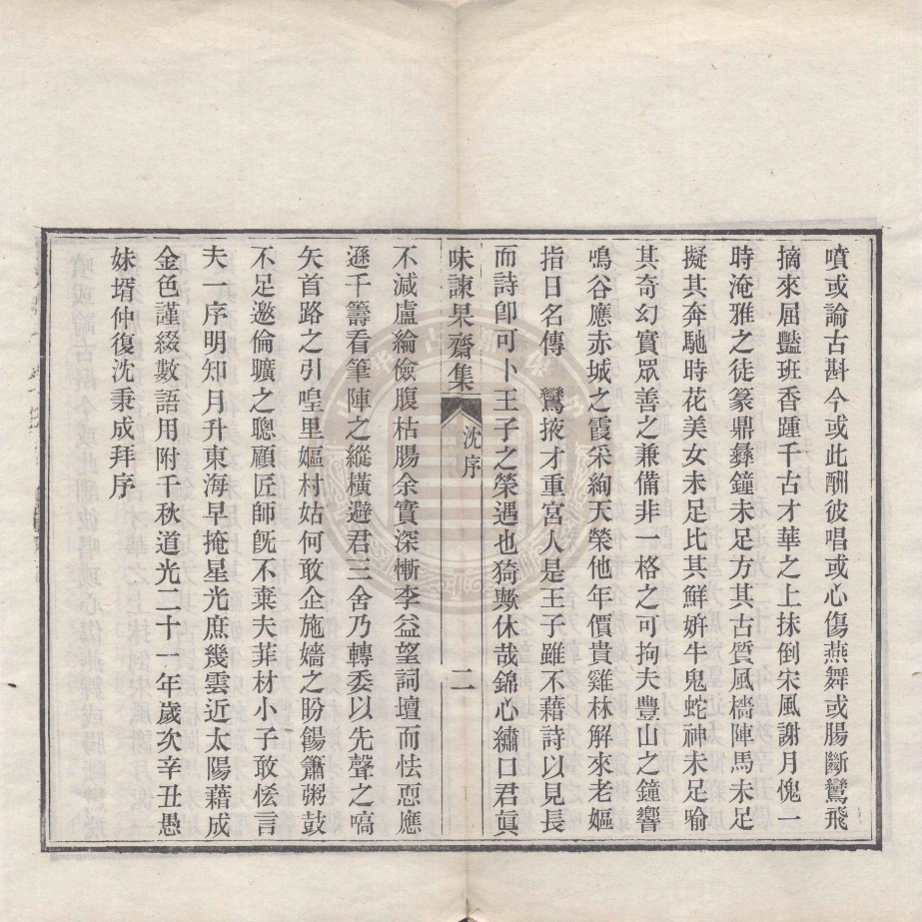 噴或論古斟今或此酬彼唱或心傷燕舞或腸斷鸞飛
摘來屈豔班香踵千古才華之上抹倒宋風謝月愧一
時淹雅之徒篆鼎彝鐘未足方其古質風檣陣馬未足
擬其奔馳時花美女未足比其鮮妍牛鬼蛇神未足喻
其奇幻實眾善之兼備非一格之可拘夫豐山之鐘響
鳴谷應赤城之霞采絢天榮他年價貴雞林解來老嫗
指日名傳 鸞掖才重宮人是王子雖不藉詩以見長
而詩卽可卜王子之榮遇也猗歟休哉錦心繡口君眞
味諫杲齋集 沈序 二
不減盧綸儉腹枯腸余實深慚李益望詞壇而怯恧應
遜千籌看筆陣之縱橫避君三舍乃轉委以先聲之嚆
矢首路之引喤里嫗村姑何敢企施嬙之盼餳簫粥鼓
不足邀倫曠之聰顧匠師旣不棄夫菲材小子敢恡言
夫一序明知月升東海早掩星光庶幾雲近太陽藉成
金色謹綴數語用附千秋道光二十一年歲次辛丑愚
妹壻仲復沈秉成拜序